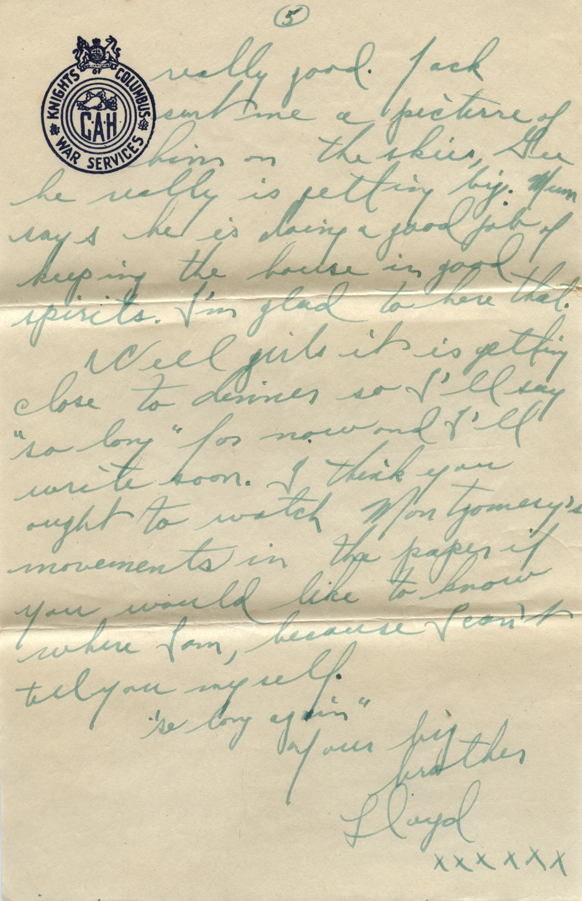 5
KNIGHTS OF COLUMBUS
C·A·H
WAR SERVICES
really good. Jack
sent me a picture of
him on the skiis, Gee
he really is getting big. Mum
says he is doing a good job of
keeping the house in good
spirits. I'm glad to here that.
Well girls it is getting
close to dinner so I'll say
"so long" for now and I'll
write soon. I think you
ought to watch Montgomery's
movements in the paper if
you would like to know
where I am, because I can't
tell you myself.
"so long again"
Your big
brother
Lloyd
xxxxxx